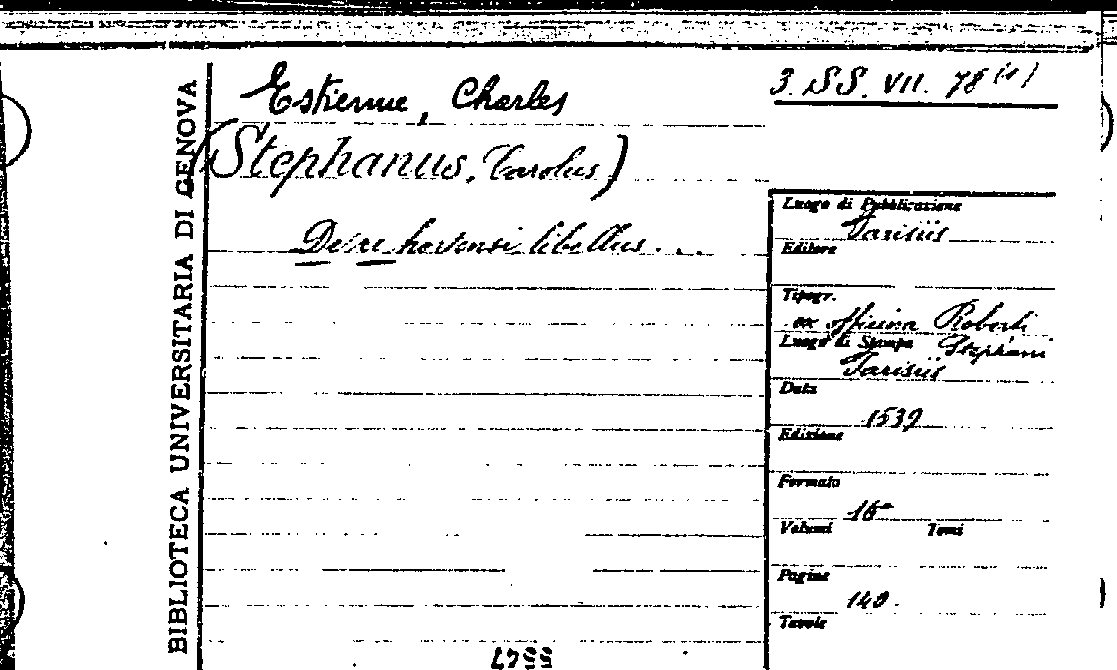 BIBLIOTECA UNIVERSITARIA DI GENOVA
Estienne, Charles
3. SS. VII. 78 (1)
(Stephanus, Carolus)
De re hortensi libellus...
Luogo di Pubblicazione
Parisiis
Editore
Tipogr.
ex officina Roberti
Stephani
Luogo di Stampa
Parisiis
Data
1539
Edizione
Formato
16°
Volumi Tomi
Pagine
140.
Tavole